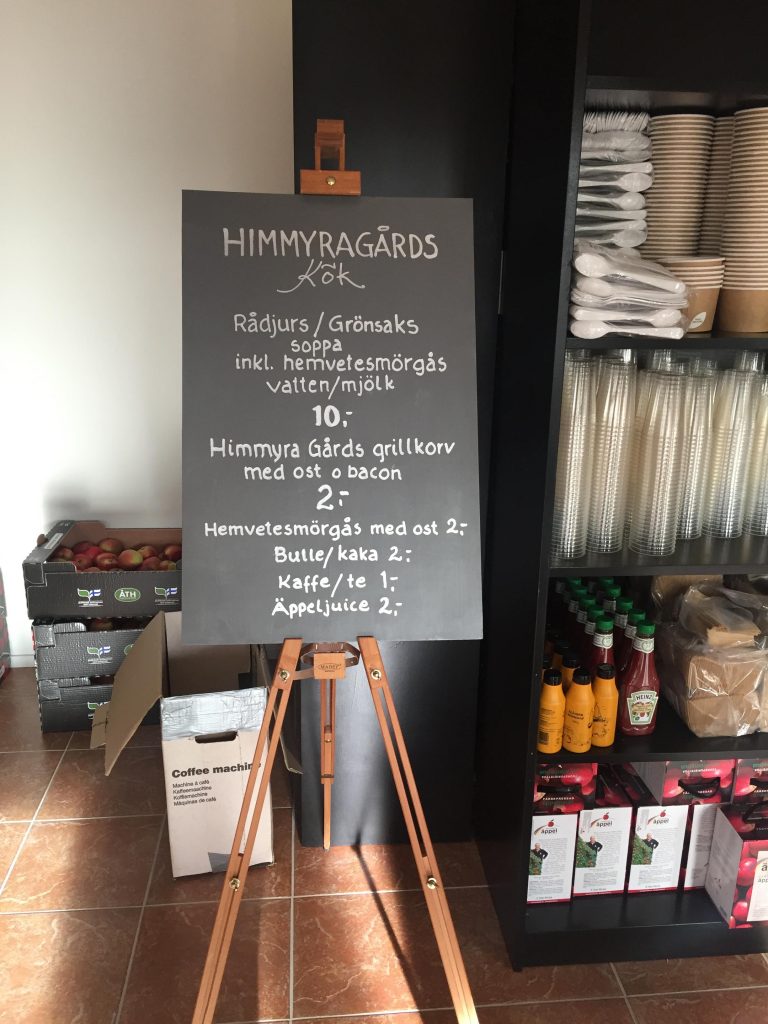 HIMMYRAGÅRDS
Kök
Rådjurs/Grönsaks
soppa
inkl. hemvetesmörgås
vatten/mjölk
10,-
Himmyra Gårds grillkorv
med ost o bacon
2,-
Hemvetesmörgås med ost 2,-
Bulle/kaka 2,-
Kaffe/te 1,-
Äppeljuice 2,-
MABEF
ÅTH
Coffee machine
Machine à café
Kaffeemaschine
Koffiemachine
Máquina de café
HEINZ
äppel
äppel
äppel